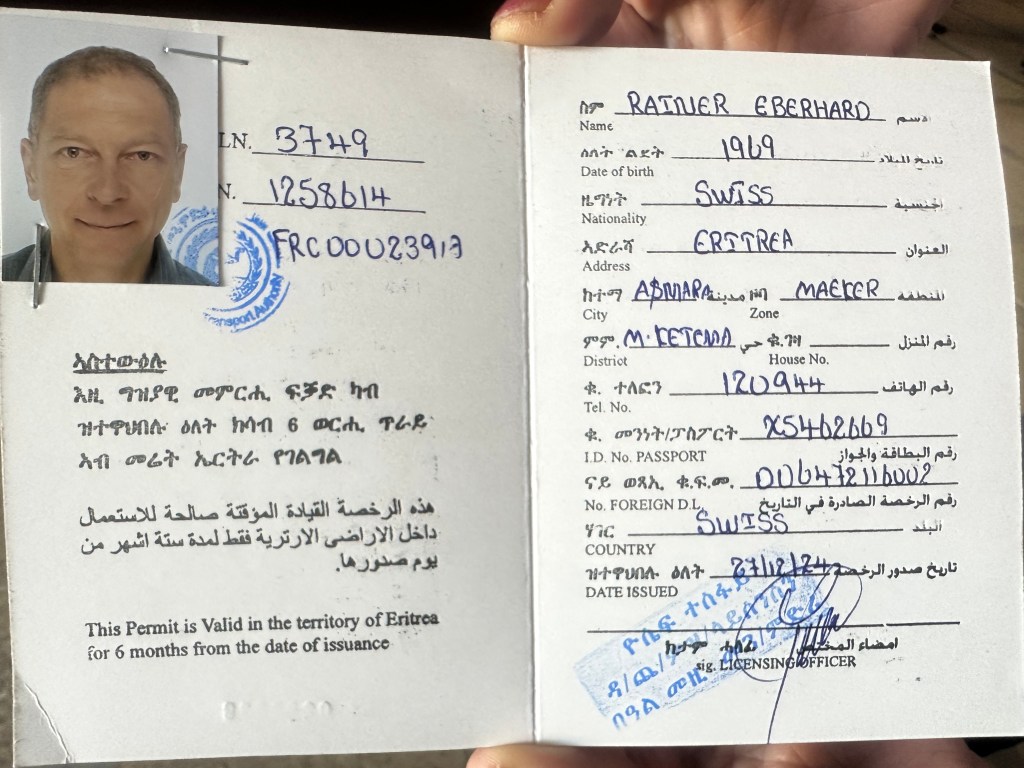 LN. 3749
N. 1258614
FRC00023913
Transport Authority
ኣስተውዕሉ
እዚ ግዝያዊ መምርሒ ፍቓድ ካብ
ዝተዋህበሉ ዕለት ክሳብ 6 ወርሒ ጥራይ
ኣብ መሬት ኤርትራ የገልግል
هذه الرخصة القيادة المؤقتة صالحة للاستعمال
داخل الاراضى الارترية فقط لمدة ستة اشهر من
يوم صدورها.
This Permit is Valid in the territory of Eritrea
for 6 months from the date of issuance
ስም RAINER EBERHARD الاسم
Name
ዕለት ልደት 1969 تاريخ الميلاد
Date of birth
ዜግነት SWISS الجنسية
Nationality
ኣድራሻ ERITREA العنوان
Address
ከተማ ASMARA مدينة ዞባ MAEKER المنطقة
City Zone
ምም. M.KETEMA حي ቁ.ገዛ رقم المنزل
District House No.
ቁ. ተለፎን 120944 رقم الهاتف
Tel. No.
ቁ. መንነት/ፓስፖርት X5462669
I.D. No. PASSPORT رقم البطاقة والجواز
ናይ ወጻኢ ቁ.ፍ.መ. 006472116002
No. FOREIGN D.L. رقم الرخصة الصادرة في التاريخ
ሃገር SWISS البلد
COUNTRY
ዝተዋህበሉ ዕለት 27/12/24 تاريخ صدور الرخصة
DATE ISSUED
ዮሴፍ ተስፋይ
ክታም ሓላፊ امضاء
sig. LICENSING OFFICER
በዓል መዚ